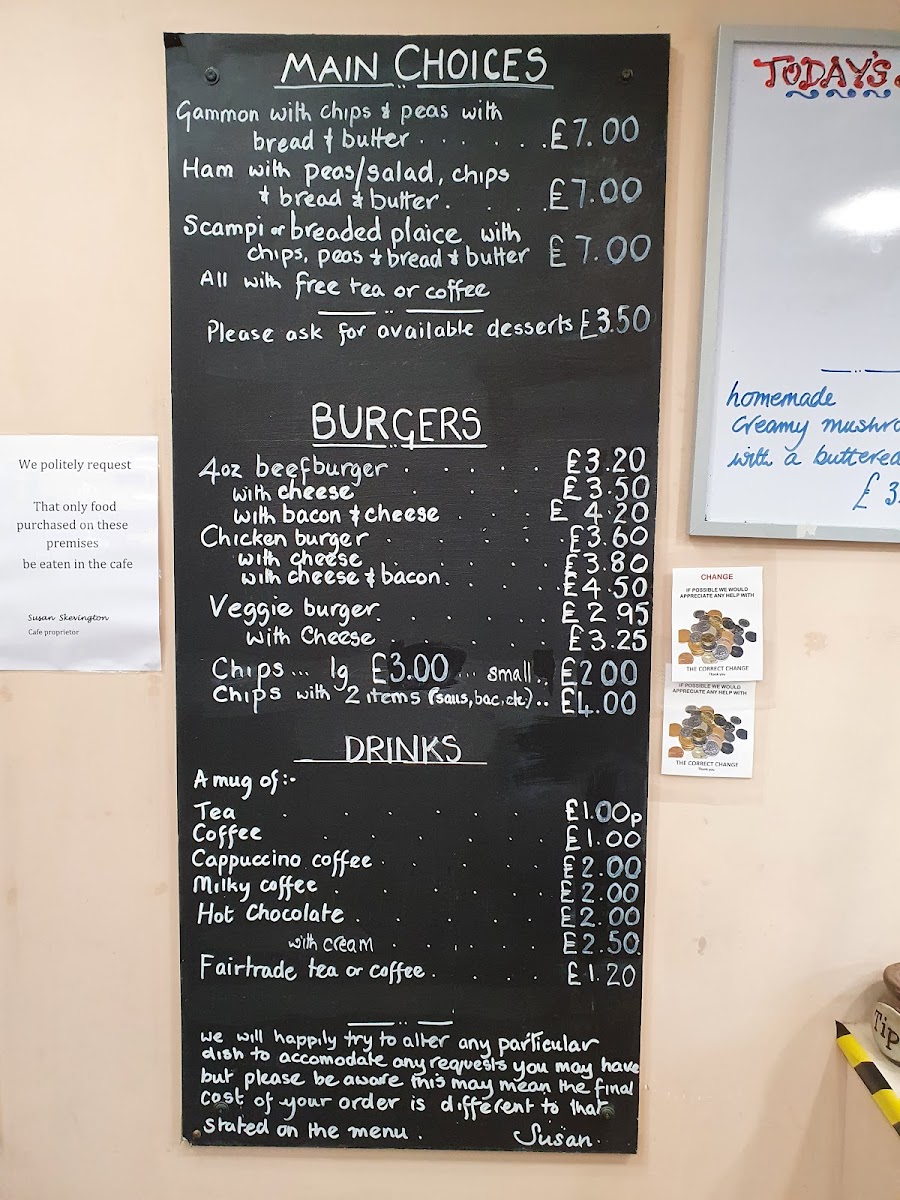 MAIN CHOICES
Gammon with chips & peas with
bread & butter . . . . . . £7.00
Ham with peas/salad, chips
& bread & butter . . . . £7.00
Scampi or breaded plaice with
chips, peas & bread & butter £7.00
All with free tea or coffee
Please ask for available desserts £3.50
BURGERS
4oz beefburger . . . . . £3.20
with cheese . . . . £3.50
with bacon & cheese . . . . £4.20
Chicken burger . . . . . £3.60
with cheese . . . . . £3.80
with cheese & bacon . . . . £4.50
Veggie burger . . . . . £2.95
with Cheese . . . . £3.25
Chips ... lg £3.00 ... small .. £2.00
Chips with 2 items (saus, bac, etc) .. £4.00
DRINKS
A mug of:-
Tea . . . . . £1.00p
Coffee . . . . . £1.00
Cappuccino coffee . . . . . £2.00
Milky coffee . . . . . £2.00
Hot Chocolate . . . . . £2.00
with cream . . . . . £2.50
Fairtrade tea or coffee . . . . £1.20
we will happily try to alter any particular
dish to accomodate any requests you may have
but please be aware this may mean the final
cost of your order is different to that
stated on the menu .
Susan.
We politely request
That only food
purchased on these
premises
be eaten in the cafe
Susan Skevington
Cafe proprietor
TODAY'S
homemade
Creamy
with a buttered
£3.
CHANGE
IF POSSIBLE WE WOULD
APPRECIATE ANY HELP WITH
THE CORRECT CHANGE
Thank you
IF POSSIBLE WE WOULD
APPRECIATE ANY HELP WITH
THE CORRECT CHANGE
Thank you
Tip